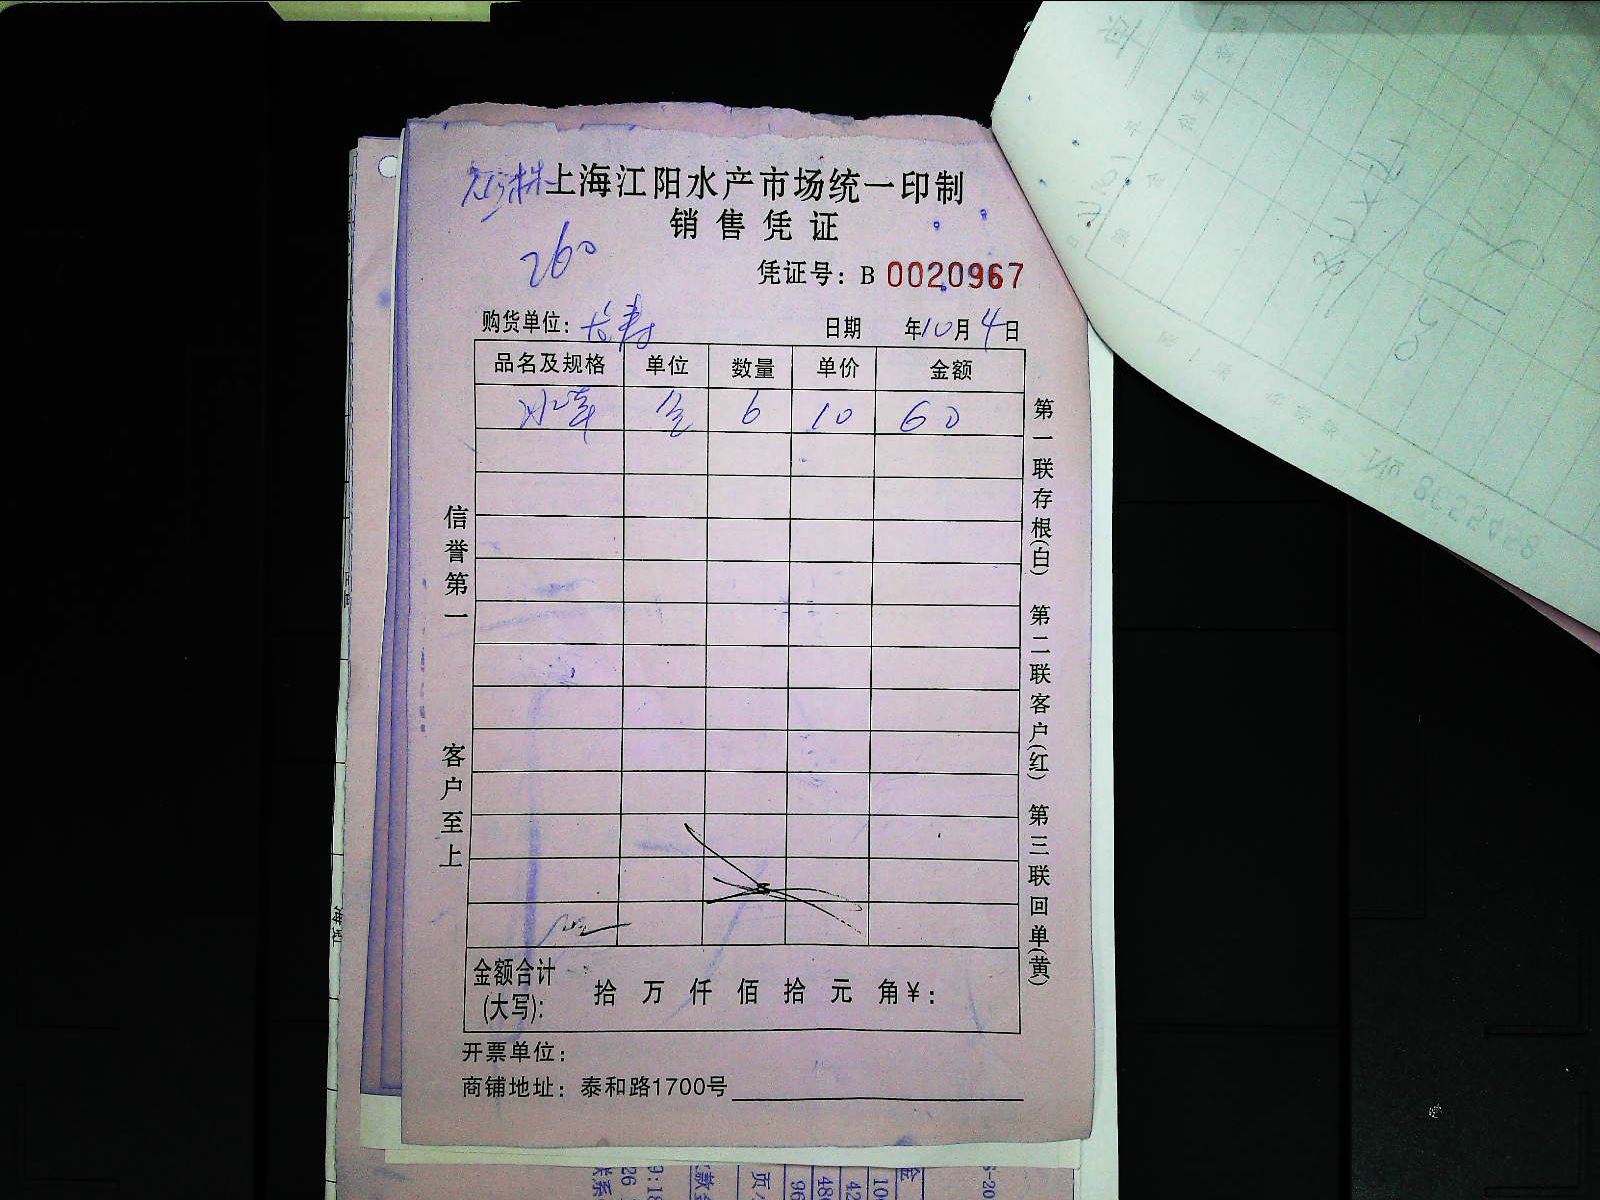 上海江阳水产市场统一印制
销售凭证
260
凭证号：B 0020967
购货单位：长寿 日期 年10月4日
品名及规格 单位 数量 单价 金额
6 10 60
信誉第一
客户至上
第一联存根(白) 第二联客户(红) 第三联回单(黄)
金额合计
(大写)： 拾 万 仟 佰 拾 元 角 ¥：
开票单位：
商铺地址：泰和路1700号